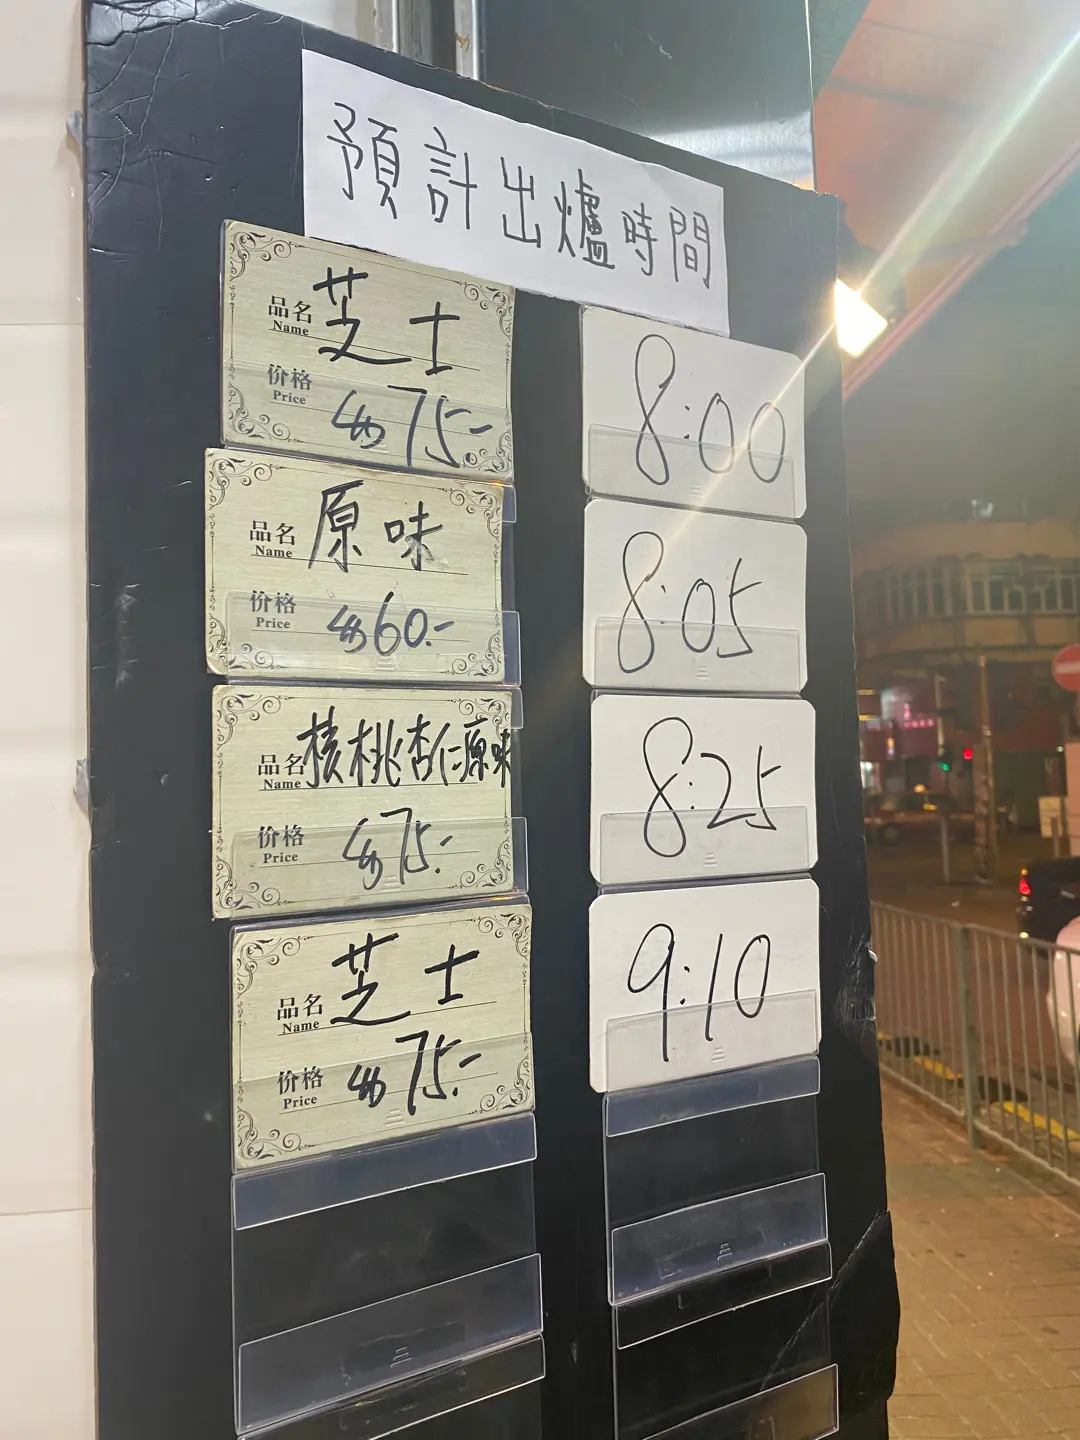 預計出爐時間
品名 芝士
Name
价格 $75.-
Price
8:00
品名 原味
Name
价格 $60.-
Price
8:05
品名 核桃杏仁原味
Name
价格 $75.-
Price
8:25
品名 芝士
Name
价格 $75.-
Price
9:10